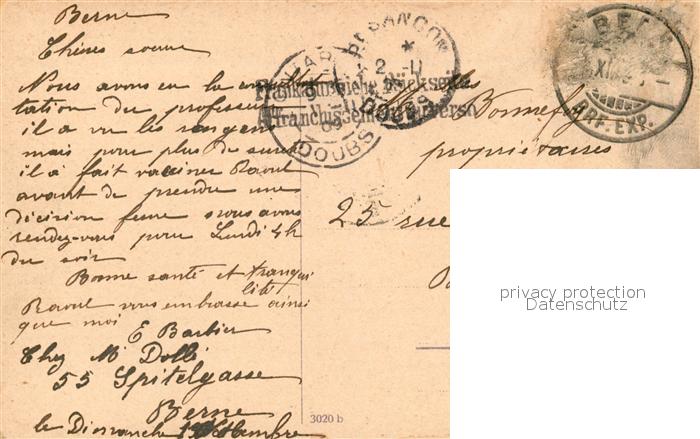 Berne
Chères soeurs
Nous avons eu la consul
tation du professeur
il a vu les rayons
mais pour plus de sureté
il a fait vacciner Raoul
avant de prendre une
dicision ferme nous avons
rendez-vous pour Lundi 4h
du soir
Bonne santé et tranqui
lité
Raoul vous embrasse ainsi
que moi
E Barbier
Chez Mr Dolli
55 Spitelgasse
Berne
le Dimanche
BESANCON
DOUBS
DOUBS
Musikalische Rückseite
BERN
XI
BRF. EXP.
Mlles
Bonnefoy
propriétaires
23 rue
3020 b
privacy protection
Datenschutz